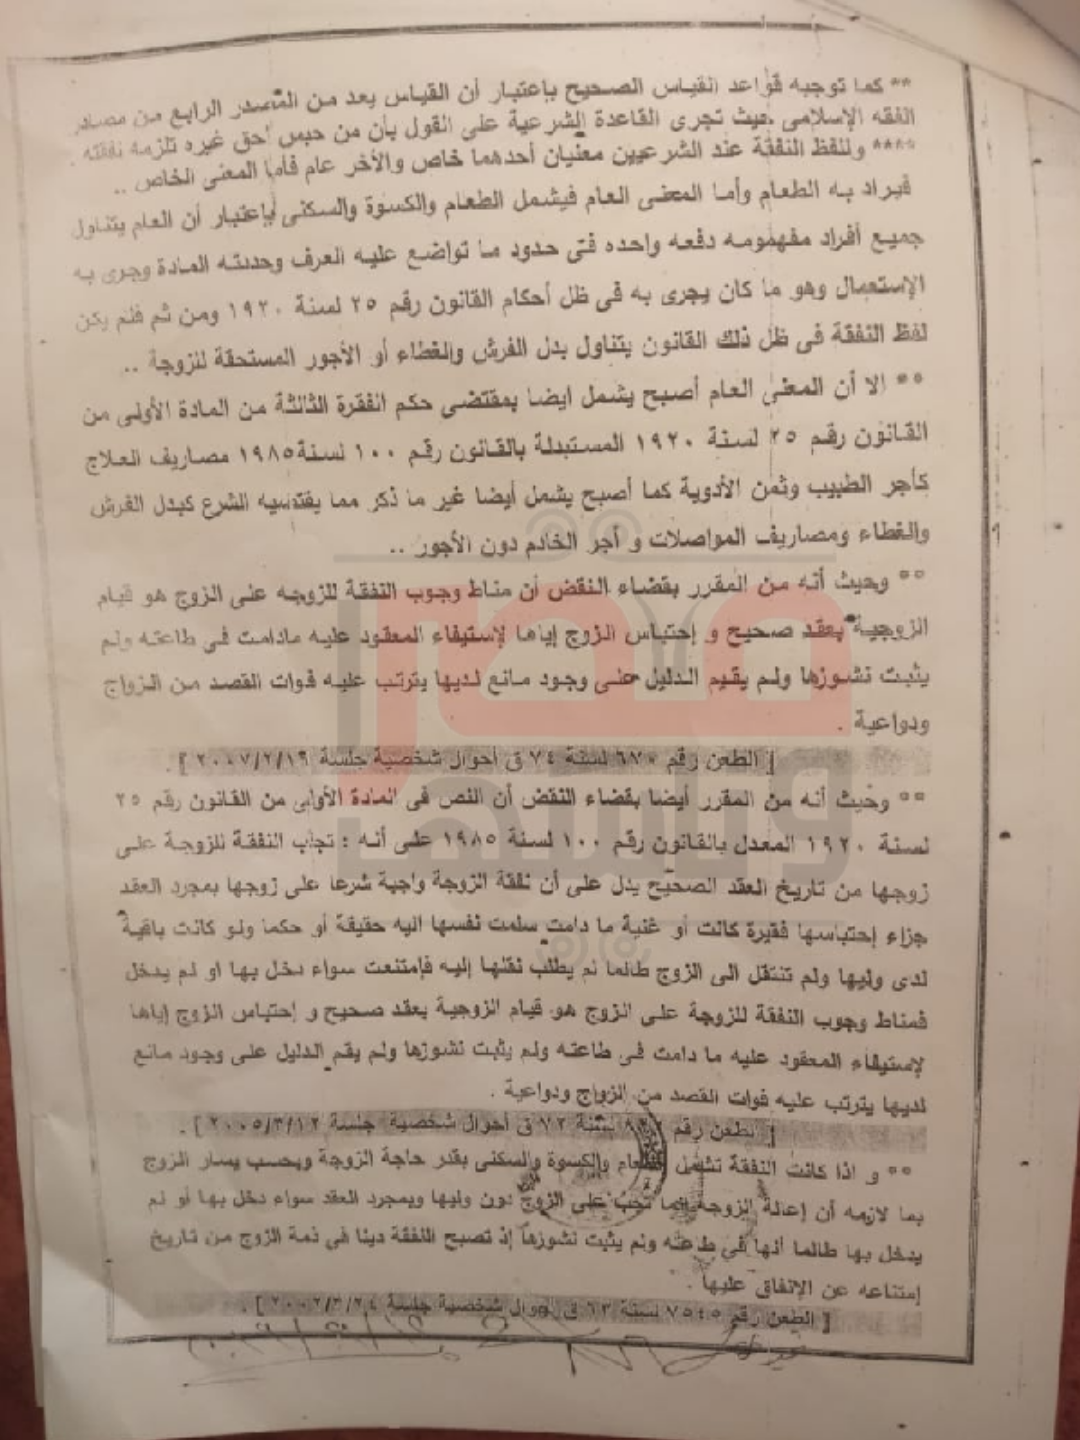 ** كما توجبه قواعد القياس الصحيح بإعتبار أن القياس يعد من المصدر الرابع من مصادر
الفقه الإسلامى حيث تجرى القاعدة الشرعية على القول بأن من حبس لحق غيره تلزمه نفقته .
**** وللفظ النفقة عند الشرعيين معنيان أحدهما خاص والأخر عام فأما المعنى الخاص ..
فيراد به الطعام وأما المعنى العام فيشمل الطعام والكسوة والسكنى بإعتبار أن العام يتناول
جميع أفراد مفهومه دفعه واحده فى حدود ما تواضع عليه العرف وحددته المادة وجرى به
الإستعمال وهو ما كان يجرى به فى ظل أحكام القانون رقم ٢٥ لسنة ١٩٢٠ ومن ثم فلم يكن
لفظ النفقة فى ظل ذلك القانون يتناول بدل الفرش والغطاء أو الأجور المستحقة للزوجة ..
** الا أن المعنى العام أصبح يشمل ايضا بمقتضى حكم الفقرة الثالثة من المادة الأولى من
القانون رقم ٢٥ لسنة ١٩٢٠ المستبدلة بالقانون رقم ١٠٠ لسنة ١٩٨٥ مصاريف العلاج
كأجر الطبيب وثمن الأدوية كما أصبح يشمل أيضا غير ما ذكر مما يقتضيه الشرع كبدل الفرش
والغطاء ومصاريف المواصلات و أجر الخادم دون الأجور ..
** وحيث أنه من المقرر بقضاء النقض أن مناط وجوب النفقة للزوجه على الزوج هو قيام
الزوجية بعقد صحيح و إحتباس الزوج إياها لإستيفاء المعقود عليه مادامت فى طاعته ولم
يثبت نشوزها ولم يقيم الدليل على وجود مانع لديها يترتب عليه فوات القصد من الزواج
ودواعية .
[ الطعن رقم ٦٧٠ لسنة ٧٤ ق أحوال شخصية جلسة ٢٠٠٧/٢/١٦ ] .
** وحيث أنه من المقرر أيضا بقضاء النقض أن النص فى المادة الأولى من القانون رقم ٢٥
لسنة ١٩٢٠ المعدل بالقانون رقم ١٠٠ لسنة ١٩٨٥ على أنه : تجب النفقة للزوجة على
زوجها من تاريخ العقد الصحيح يدل على أن نفقة الزوجة واجبة شرعا على زوجها بمجرد العقد
جزاء إحتباسها فقيرة كانت أو غنية ما دامت سلمت نفسها اليه حقيقة أو حكما ولو كانت باقية
لدى وليها ولم تنتقل الى الزوج طالما لم يطلب نقلها إليه فإمتنعت سواء دخل بها او لم يدخل
فمناط وجوب النفقة للزوجة على الزوج هو قيام الزوجية بعقد صحيح و إحتباس الزوج إياها
لإستيفاء المعقود عليه ما دامت فى طاعته ولم يثبت نشوزها ولم يقم الدليل على وجود مانع
لديها يترتب عليه فوات القصد من الزواج ودواعية .
[ الطعن رقم لسنة ٧٢ ق أحوال شخصية جلسة ٢٠٠٥/٣/١٢ ] .
** و اذا كانت النفقة تشمل الطعام والكسوة والسكنى بقدر حاجة الزوجة وبحسب يسار الزوج
بما لازمه أن إعالة الزوجة إنما تجب على الزوج دون وليها وبمجرد العقد سواء دخل بها أو لم
يدخل بها طالما أنها فى طاعته ولم يثبت نشوزها إذ تصبح النفقة دينا فى ذمة الزوج من تاريخ
إمتناعه عن الإنفاق عليها .
[ الطعن رقم ٧٥٤٥ لسنة ٦٣ ق أحوال شخصية جلسة ٢٠٠٢/٣/٢٤ ] .